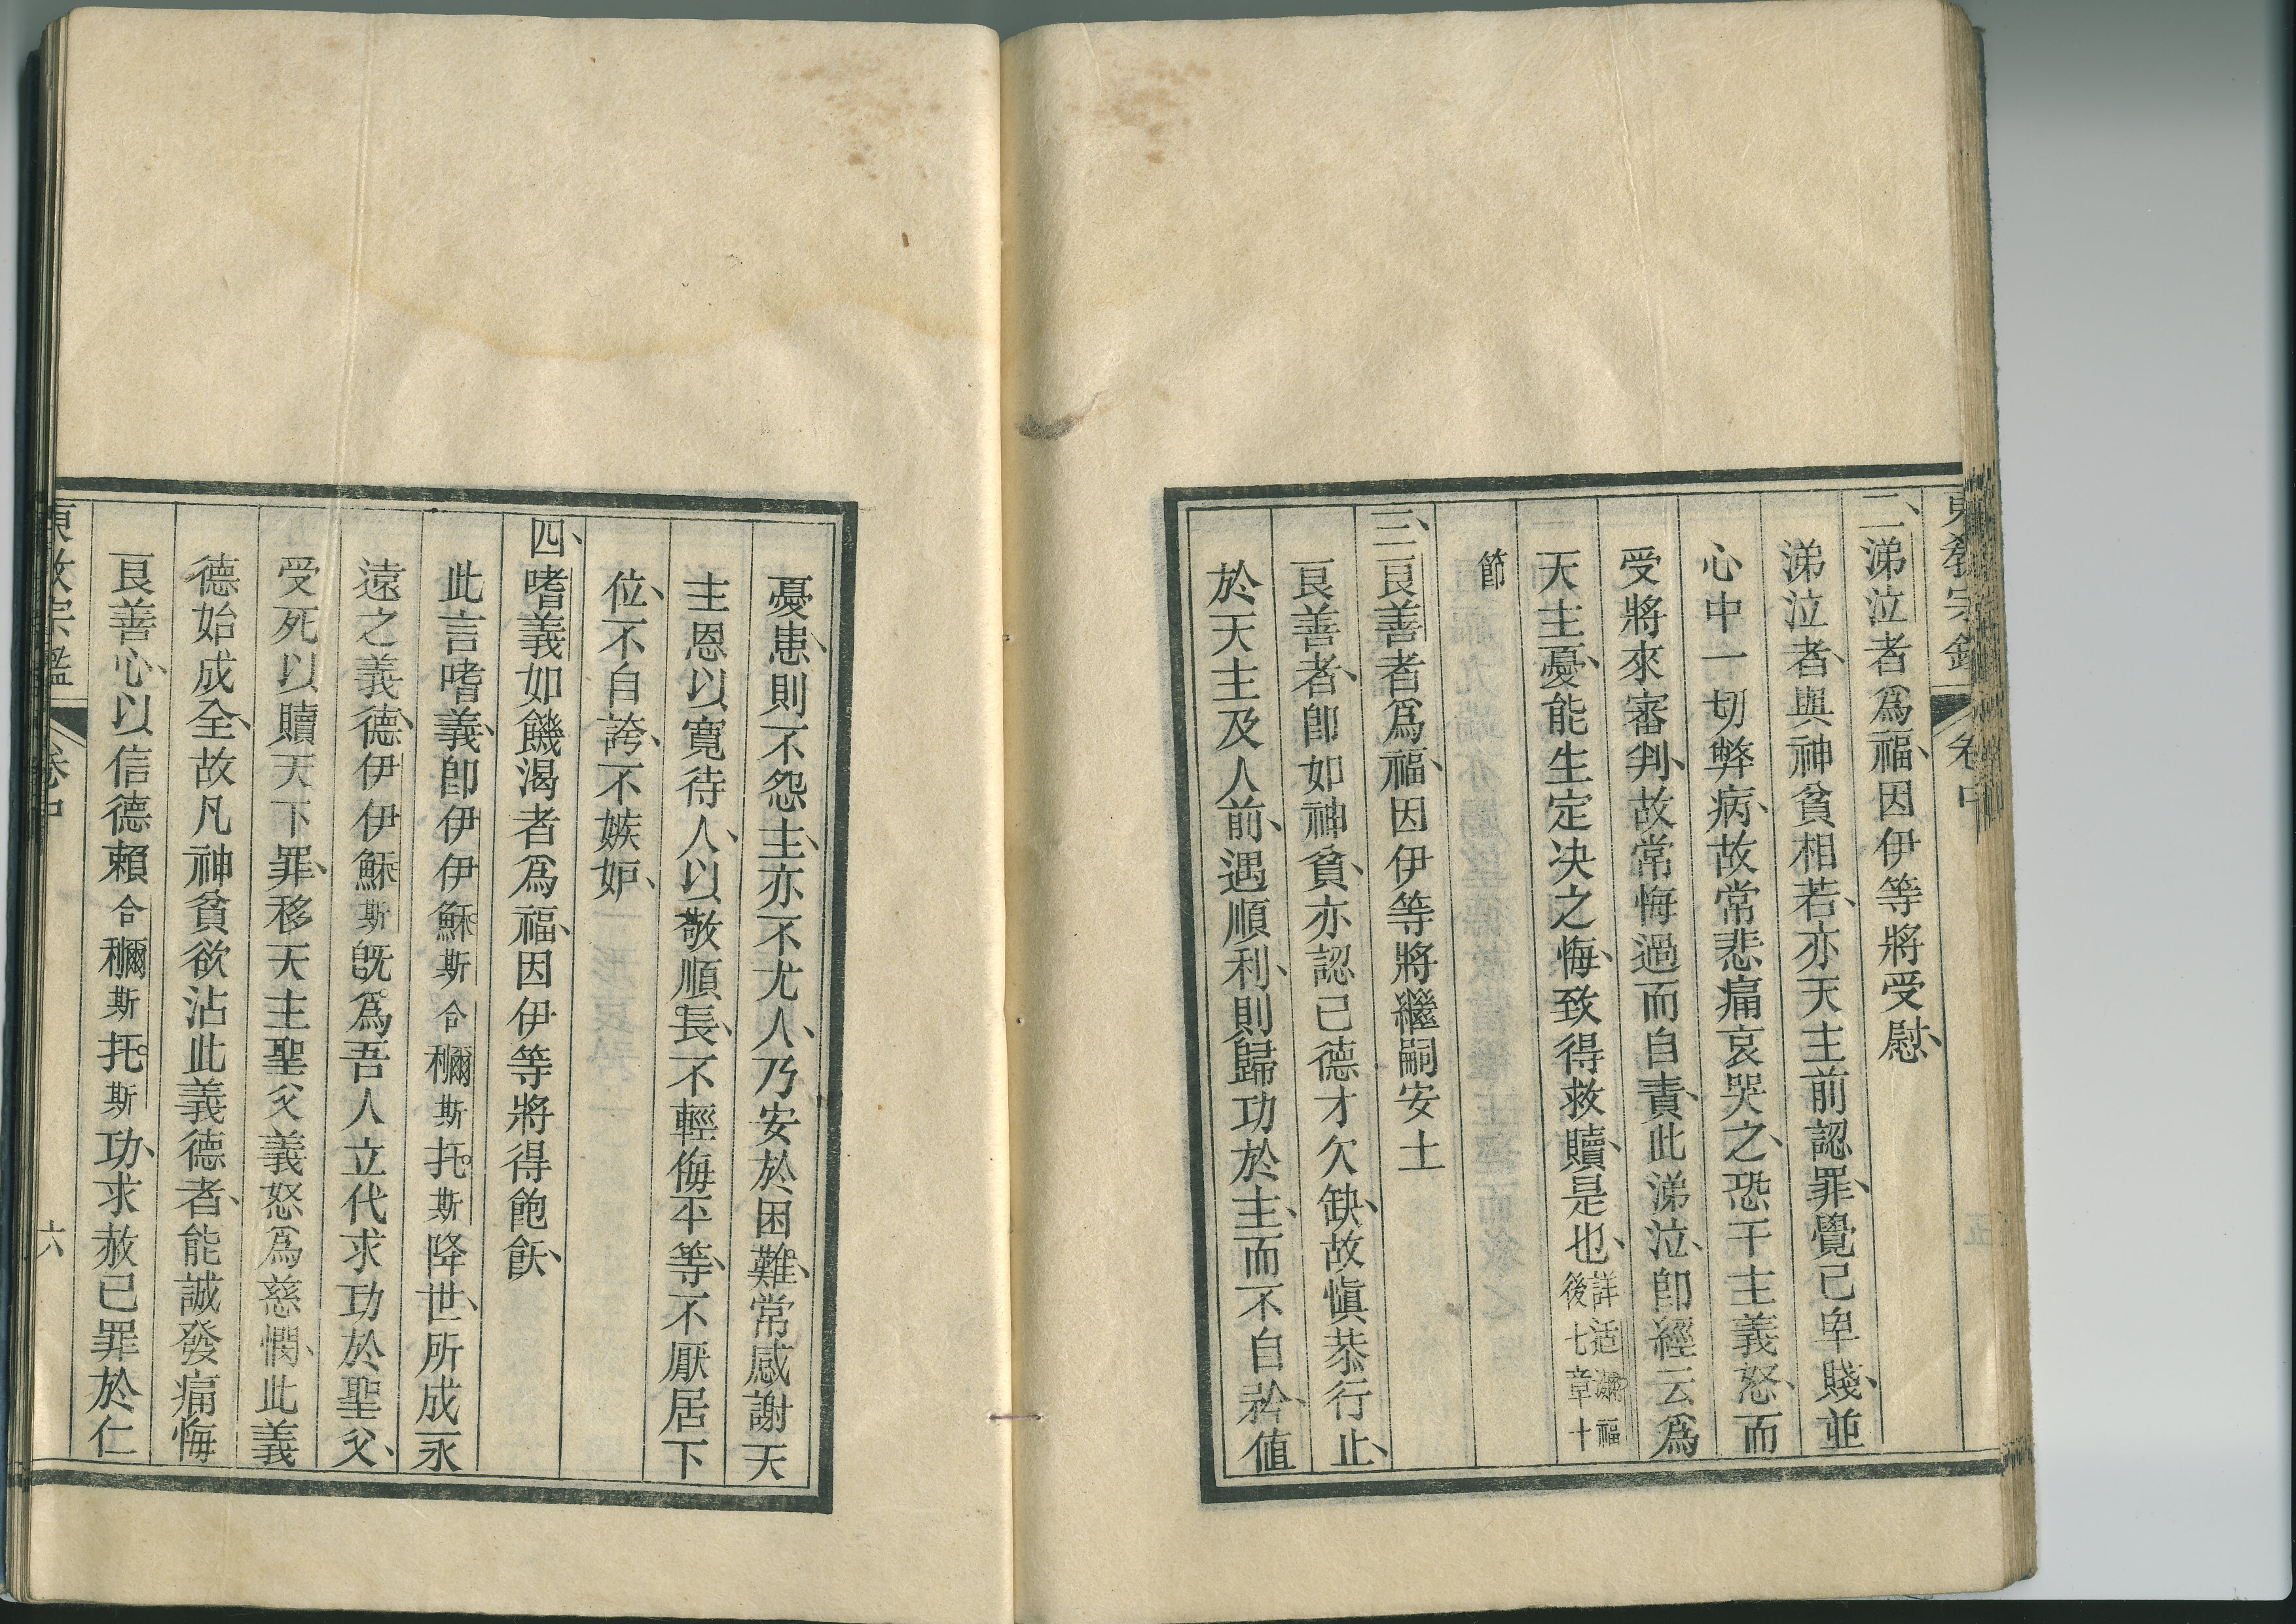 東教宗鑑 卷中
二、涕泣者爲福、因伊等將受慰、
涕泣者、與神貧相若、亦天主前認罪、覺己卑賤、並
心中一切弊病、故常悲痛哀哭之、恐干主義怒、而
受將來審判、故常悔過而自責、此涕泣、卽經云、爲
天主憂、能生定决之悔、致得救贖、是也、詳适凇福後七章十
節
三、良善者爲福、因伊等將繼嗣安土
良善者、卽如神貧、亦認己德才欠缺、故愼恭行止、
於天主及人前、遇順利、則歸功於主、而不自矜、値
憂患、則不怨主、亦不尤人、乃安於困難、常感謝天
主恩、以寬待人、以敬順長、不輕侮平等、不厭居下
位、不自誇、不嫉妒、
四、嗜義如饑渴者爲福、因伊等將得飽飫、
此言嗜義、卽伊伊穌斯合穪斯托斯降世、所成永
遠之義德、伊伊穌斯旣爲吾人立代求功於聖父、
受死以贖天下罪、移天主聖父義怒爲慈憫、此義
德始成全、故凡神貧欲沾此義德者、能誠發痛悔
良善心、以信德賴合穪斯托斯功、求赦己罪於仁
東教宗鑑 卷中 六